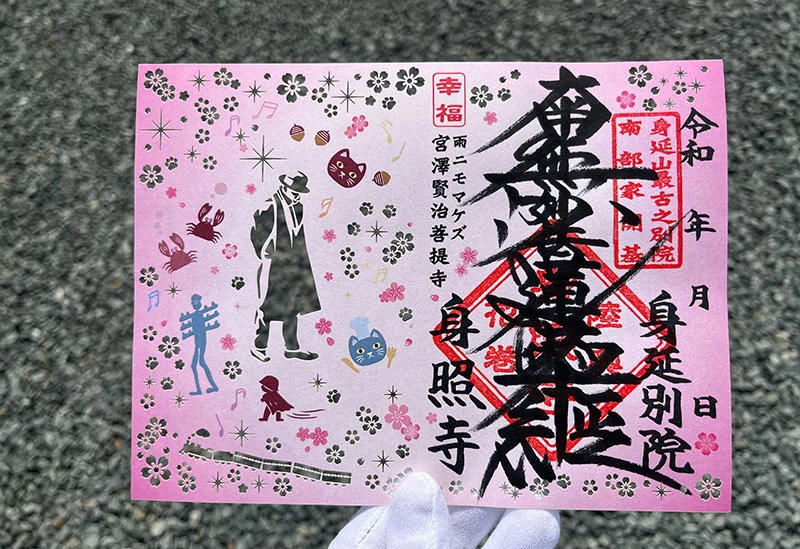 令和 年 月 日
身延山最古之別院
南部家開基
身延別院
南無妙法蓮華経
幸福
雨ニモマケズ
宮澤賢治菩提寺
身照寺